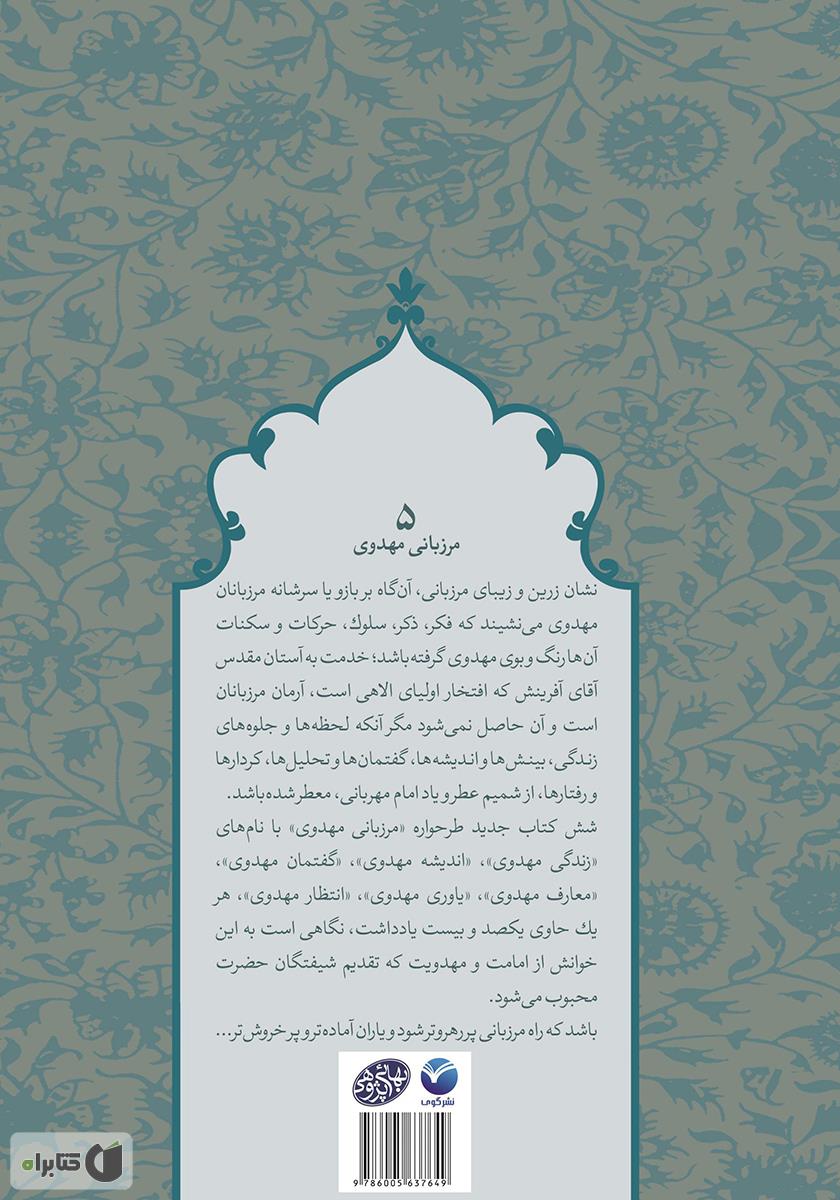 ۵
مرزبانی مهدوی
نشان زرین و زیبای مرزبانی، آن‌گاه بر بازو یا سرشانه مرزبانان
مهدوی می‌نشیند که فکر، ذکر، سلوك، حرکات و سکنات
آن‌ها رنگ و بوی مهدوی گرفته باشد؛ خدمت به آستان مقدس
آقای آفرینش که افتخار اولیای الاهی است، آرمان مرزبانان
است و آن حاصل نمی‌شود مگر آنکه لحظه‌ها و جلوه‌های
زندگی، بینش‌ها و اندیشه‌ها، گفتمان‌ها و تحلیل‌ها، کردارها
و رفتارها، از شمیم عطر و یاد امام مهربانی، معطر شده باشد.
شش کتاب جدید طرحواره «مرزبانی مهدوی» با نام‌های
«زندگی مهدوی»، «اندیشه مهدوی»، «گفتمان مهدوی»،
«معارف مهدوی»، «یاوری مهدوی»، «انتظار مهدوی»، هر
یك حاوی یکصد و بیست یادداشت، نگاهی است به این
خوانش از امامت و مهدویت که تقدیم شیفتگان حضرت
محبوب می‌شود.
باشد که راه مرزبانی پر رهروتر شود و یاران آماده‌تر و پر خروش‌تر...
بهائی پژوهی
نشر گوی
9 786005 637649
کتابراه